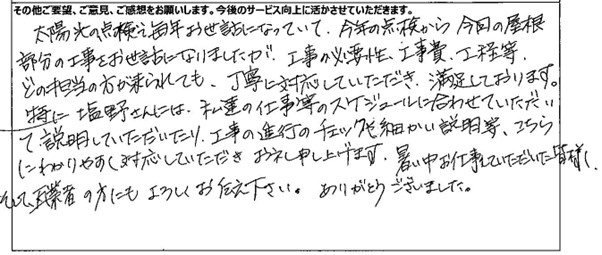 その他ご要望、ご意見、ご感想をお願いします。今後のサービス向上に活かさせていただきます。
太陽光の点検で毎年お世話になっていて、今年の点検から今回の屋根
部分の工事をお世話になりましたが、工事の必要性、工事費、工程等、
どの担当の方が来られても、丁寧に対応していただき、満足しております。
特に塩野さんには、私達の仕事等のスケジュールに合わせていただい
て、説明していただいたり、工事の進行のチェックや細かい説明等、こちら
にわかりやすく対応していただきお礼申し上げます。暑い中お仕事していただいた皆様、
そして業者の方にもよろしくお伝え下さい。ありがとうございました。